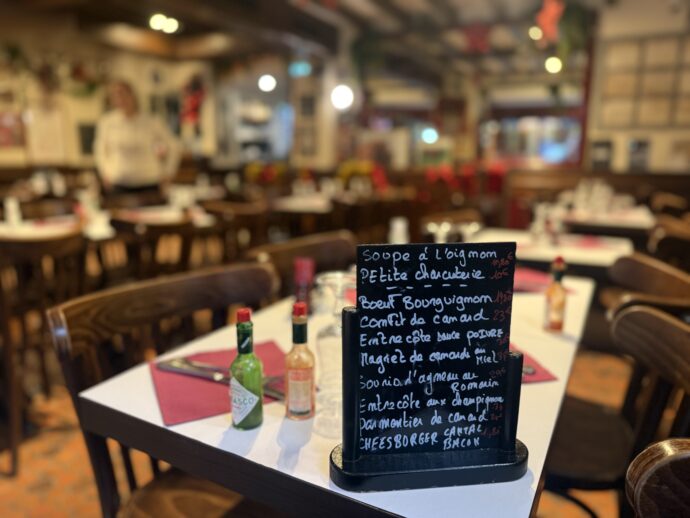 Soupe à l'oignon
PEtite charcuterie 10€
Bœuf Bourguignon
Confit de canard
Entrecôte sauce POIVRE
Magret de canard au
Miel
Souris d'agneau au
Romarin
Entrecôte aux champignon
Parmentier de canard
CHEESBORGER CANTAL
BACON